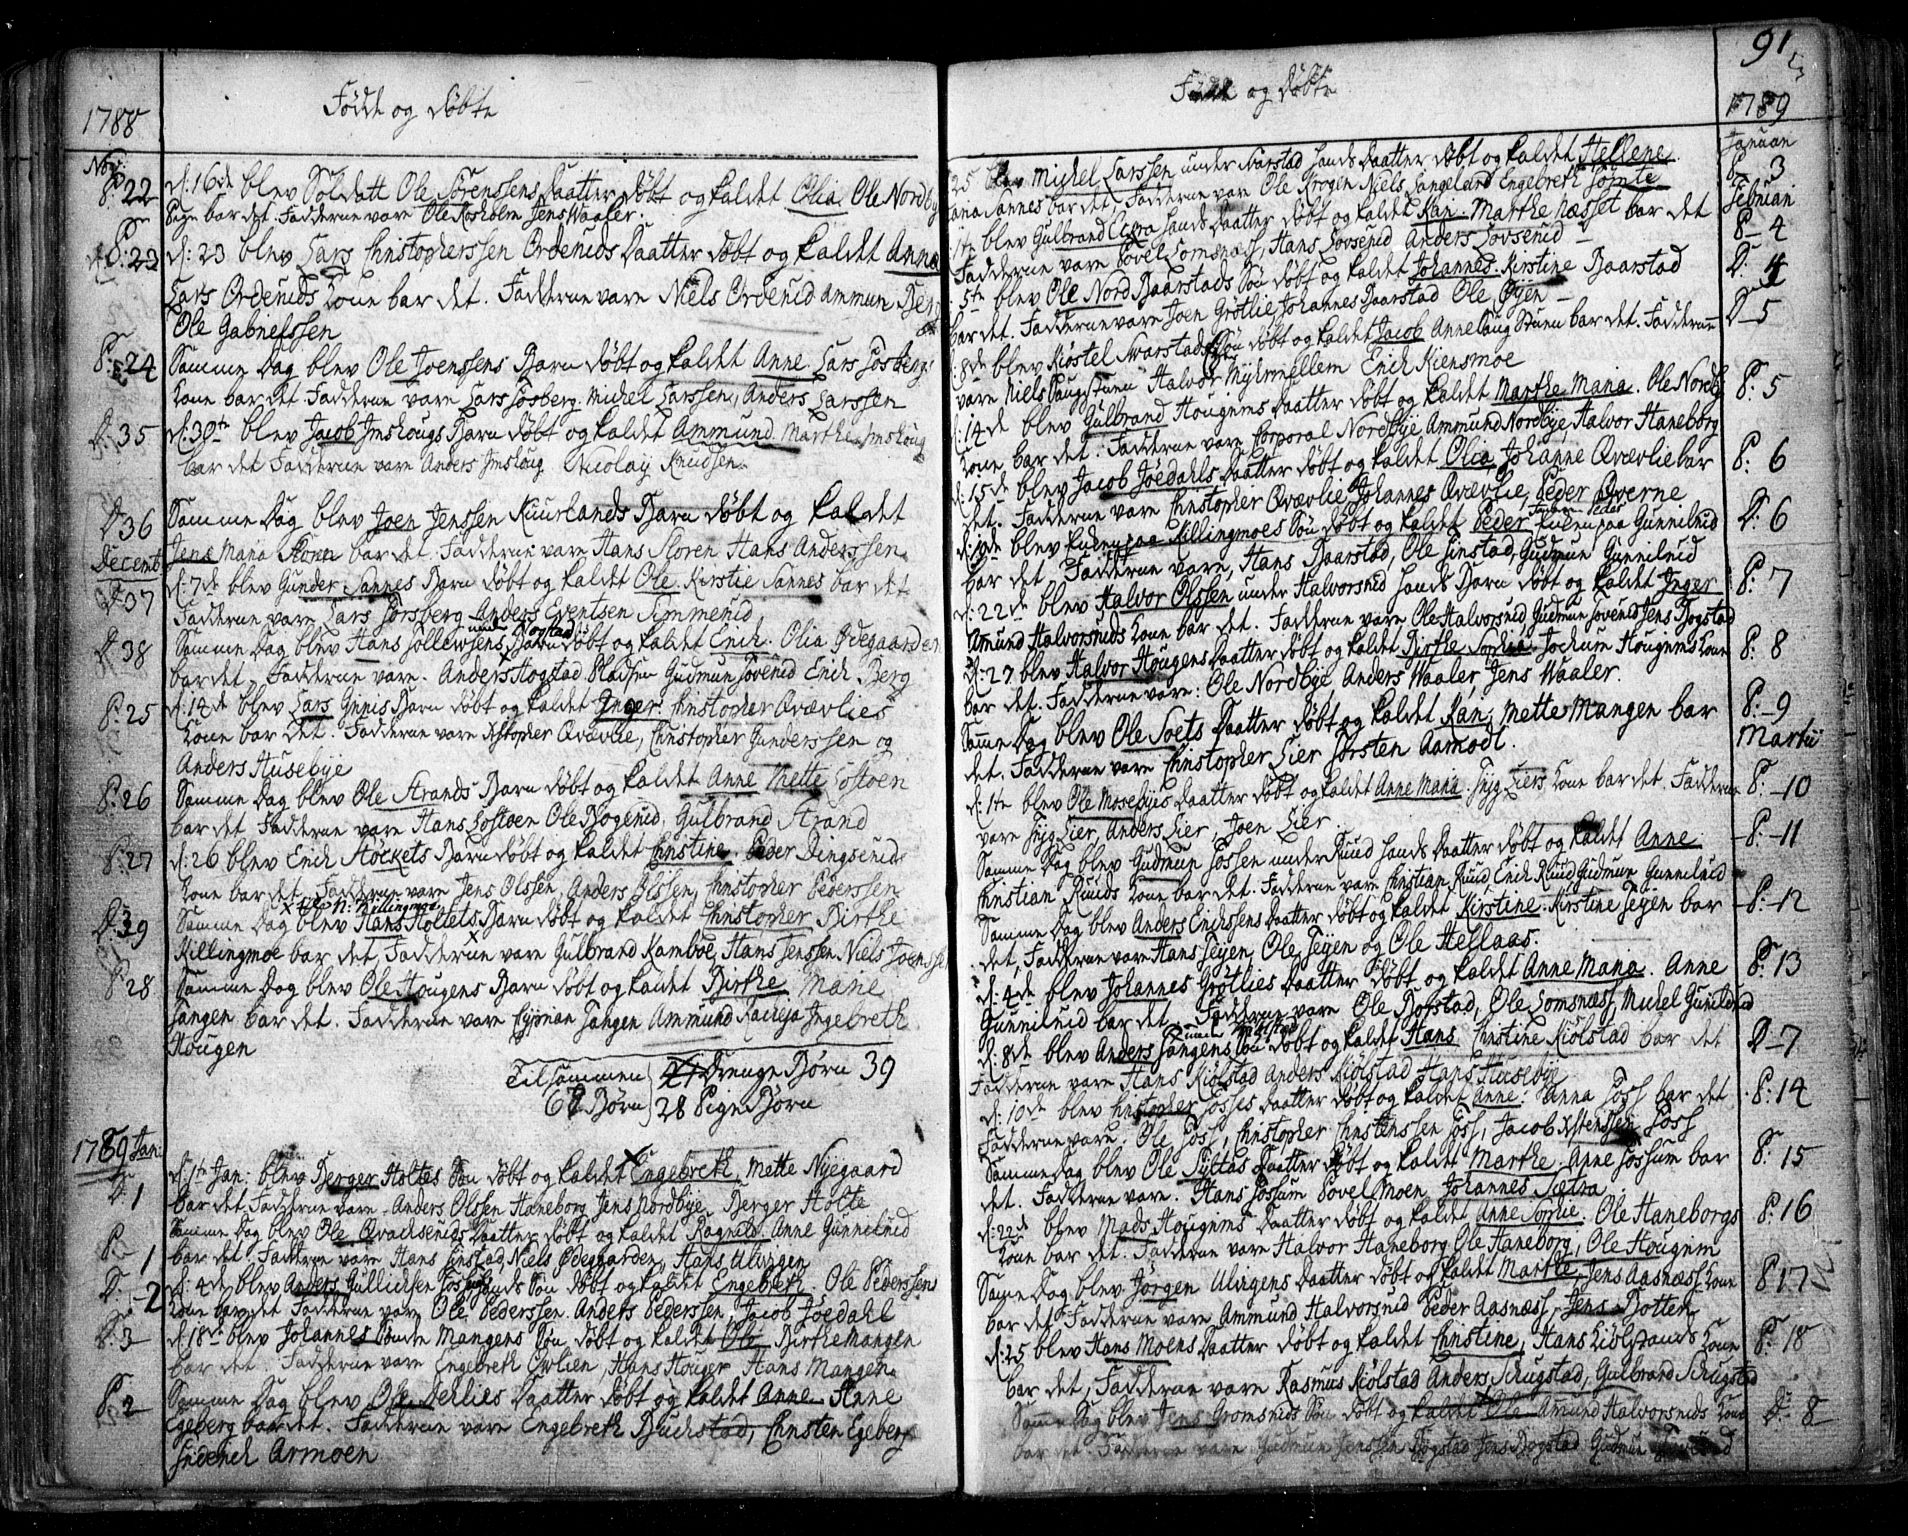 1788
Fødde og Døbte
Nov:
P: 22 d: 16de blev Soldatt Ole Sørenssens Daatter døbt og kaldet Olia Ole Nordby
bar det. Fadderne vare Ole Rosholm Jens Waaler.
P: 23 d: 23 blev Lars Christopherssen Orderuds Daatter døbt og kaldet Anne
Lars Orderuds Kone bar det. Fadderne vare Niels Orderud Ammun Berg
Ole Gabrielssen
P: 24 Samme Dag blev Ole Joenssens Barn døbt og kaldet Anne. Lars Fosbergs
Kone bar det Fadderne vare Lars Fosberg. Michel Larssen, Anders Larssen
D: 35 d: 30te blev Jacob Imshougs Barn døbt og kaldet Ammund Marthe Imshoug
bar det Fadderne vare Anders Imshoug Nicolay Knudsen.
D 36 Samme Dag blev Joen Jenssen Kuurlands Barn døbt og kaldet
Decemb Jens Maria Storen bar det. Fadderne vare Hans Storen Hans Anderssen
D: 37 d: 7de blev Gunder Sannes Barn døbt og kaldet Ole. Kirstie Sannes bar det
Fadderne vare Lars Forsberg Anders Eventsen Simmerud
D. 38 Samme Dag blev Hans Tollevsens Barn døbt og kaldet Erich. Olia Ødegaarden
bar det. Fadderne vare. Anders Hogstad Pladsen Gudmun Toverud Erich Berg
P: 25 d: 14de blev Lars Grinis Barn døbt og kaldet Inger. Christopher Qvævlies
Kone bar det. Fadderne vare Xstopher Qvævlie, Christopher Gunderssen og
Anders Husebye
P: 26 Samme Dag blev Ole Strands Barn døbt og kaldet Anne Mette Tostoen
bar det Fadderne vare Hans Tostoen Ole Nogerud, Gulbrand Strand
P: 27 d: 26 blev Erich Støckets Barn døbt og kaldet Christine. Peder Dingseruds
Kone bar det. Fadderne vare Jens Olssen, Anders Olssen, Christopher Pederssen
N: Killingmoe
D: 39 Samme Dag blev Hans Holtets Barn døbt og kaldet Christopher Birthe
Killingmoe bar det, Fadderne vare Gulbrand Kamboe, Hans Jenssen Niels Joenssen
P 28 Samme Dag blev Ole Hougens Barn døbt og kaldet Birthe Marie
Tangen bar det. Fadderne vare Cyprian Tangen Ammund Ingebreth
Hougen
Tilsammen 67 Børn } Drenge Børn 39
28 Pige Børn
1789 Jan:
D: 1 d: 1te Jan: blev Berger Holtes Søn døbt og kaldet Engebreth, Mette Nyegaard
bar det, Fadderne vare. Anders Olssen Haneborg Jens Nordbye Berger Holte
P 1 Samme Dag blev Ole Qvachseruds Daatter døbt og kaldet Ragnild. Anne Gunnerud
bar det Fadderne vare Hans Finstad, Niels Ødegaarden, Hans Ulvigen
D: 2 d: 4de blev Anders Gullichsen Fossums Søn døbt og kaldet Engebreth. Ole Pederssens
Kone bar det Fadderne vare Ole Pederssen Anders Pederssen Jacob Jøedahl
D: 3 d: 18de blev Johannes Søndre Mangens Søn døbt og kaldet Ole Birthe Mangen
bar det. Fadderne vare Engebreth Ewlien, Hans Houger Hans Mangen
P: 2 Samme Dag blev Ole Dehlies Daatter døbt og kaldet Anne Anne
Egeberg bar det. Fadderne vare Engebreth Buchstad, Christen Egeberg
Friderich Armoen
91
Fødde og Døbte
1789
Januari
P 3 25 blev Michel Larssen under Narstad hands Daatter døbt og kaldet Hellene
Sannes bar det, Fadderne vare Ole Krogen Niels Langeland Engebreth Tomte
Februari
P 4 1te blev Gulbrand Ecra hands Daatter døbt og kaldet Kari. Marthe Næsset bar det
Fadderne vare Povel Lomsnæss, Hans Tovserud Anders Tovserud
D: 4 5te blev Ole Nord Baarstads Søn døbt og kaldet Johannes. Kirstine Baarstad
bar det. Fadderne vare Joen Grøtlie Johannes Baarstad Ole Øyen
D 5 8de blev Kiøstel Svarstads Søn døbt og kaldet Jacob Anne Haugstuen bar det. Fadderne
vare Niels Haugstuen Halvor Myhrmellem Erich Kiensmoe
P: 5 d: 14de blev Gulbrand Hougims Daatter døbt og kaldet Marthe Maria. Ole Nordby
Kone bar det. Fadderne vare Corporal Nordbye Ammund Nordbye, Halvor Haneborg
P: 6 d: 15de blev Jacob Jøedahls Daatter døbt og kaldet Olia, Johanne Qvævlie bar
det. Fadderne vare Christopher Qvævlie Johannes Qvævlie, Peder Qverne
D: 6 blev paa Killingmoes Søn døbt og kaldet Peder paa Gunnerud
bar det Fadderne vare, Hans Baarstad, Ole Finstad, Gudmun Gunnerud
P: 7 d: 22de blev Halvor Olssen under Halvorsrud hands Barn døbt og kaldet Inger
Amund Halvorsruds Kone bar det. Fadderne vare Ole Halvorsrud, Gudmun Toverud Jens Bogstad
P: 8 d: 27 blev Halvor Hougens Daatter døbt og kaldet Birthe Sophia Jochum Hougims Kone
bar det. Fadderne vare: Ole Nordbye Anders Waaler, Jens Waaler.
P: 9 Samme Dag blev Ole Toets Daatter døbt og kaldet Kari, Mette Mangen bar
det. Fadderne vare Christopher Lier Torsten Aamodt.
Martii
P: 10 d: 1te blev Ole Mosebyes Daatter døbt og kaldet Anne Maria. Thrig Liers Kone bar det. Fadderne
vare Thrig Lier, Anders Lier, Joen Lier
P: 11 Samme Dag blev Gudmun Fossen under Ruud hands Daatter døbt og kaldet Anne
Christian Ruuds Kone bar det. Fadderne vare Christian Ruud, Erich Ruud, Gudmun Gunnerud
P: 12 Samme Dag blev Anders Erichsens Daatter døbt og kaldet Kirstine. Kirstine Teyen bar
det, Fadderne vare Hans Teyen, Ole Teyen og Ole Hellaas.
P: 13 d: 4de blev Johannes Grøtlies Daatter døbt og kaldet Anne Maria. Anne
Gunnerud bar det. Fadderne vare Ole Borstad, Ole Lomsnæss, Michel Gunnerud
D 7 d: 8de blev Anders Tangens Søn døbt og kaldet Hans Christine Kiølstad bar det
Fadderne vare Hans Kiølstad Anders Kiølstad Hans Husebye
P: 14 d: 10de blev Christopher Fosses Daatter døbt og kaldet Anne: Anna Foss bar det
Fadderne vare. Ole Foss, Christopher Christenssen Foss, Jacob Foss
P: 15 Samme Dag blev Ole Sylta's Daatter døbt og kaldet Marthe Anne Fossum bar
det. Fadderne vare. Hans Fossum Povel Moen Johannes Sætra
P: 16 d: 22de blev Mads Hougims Daatter døbt og kaldet Anne Sophie. Ole Haneborgs
Kone bar det. Fadderne vare Halvor Haneborg Ole Haneborg, Ole Hougim
P 17 Samme Dag blev Jørgen Ulvigens Daatter døbt og kaldet Marthe, Jens Aasnæss Kone
bar det Fadderne vare Ammund Halvorsrud Peder Aasnæss, Jens Botten
P: 18 d: 25 blev Hans Moens Daatter døbt og kaldet Christine, Hans Kiølstads Kone
bar det, Fadderne vare Rasmus Kiølstad Anders Schugstad, Gulbrand Schugstad
D: 8 Samme Dag blev Jens Gromsruds Søn døbt og kaldet Ole Amund Halvorsruds Kone
bar det Fadderne vare Gudmun Jenssen Bogstad Jens Bogstad Gudmun Toverud